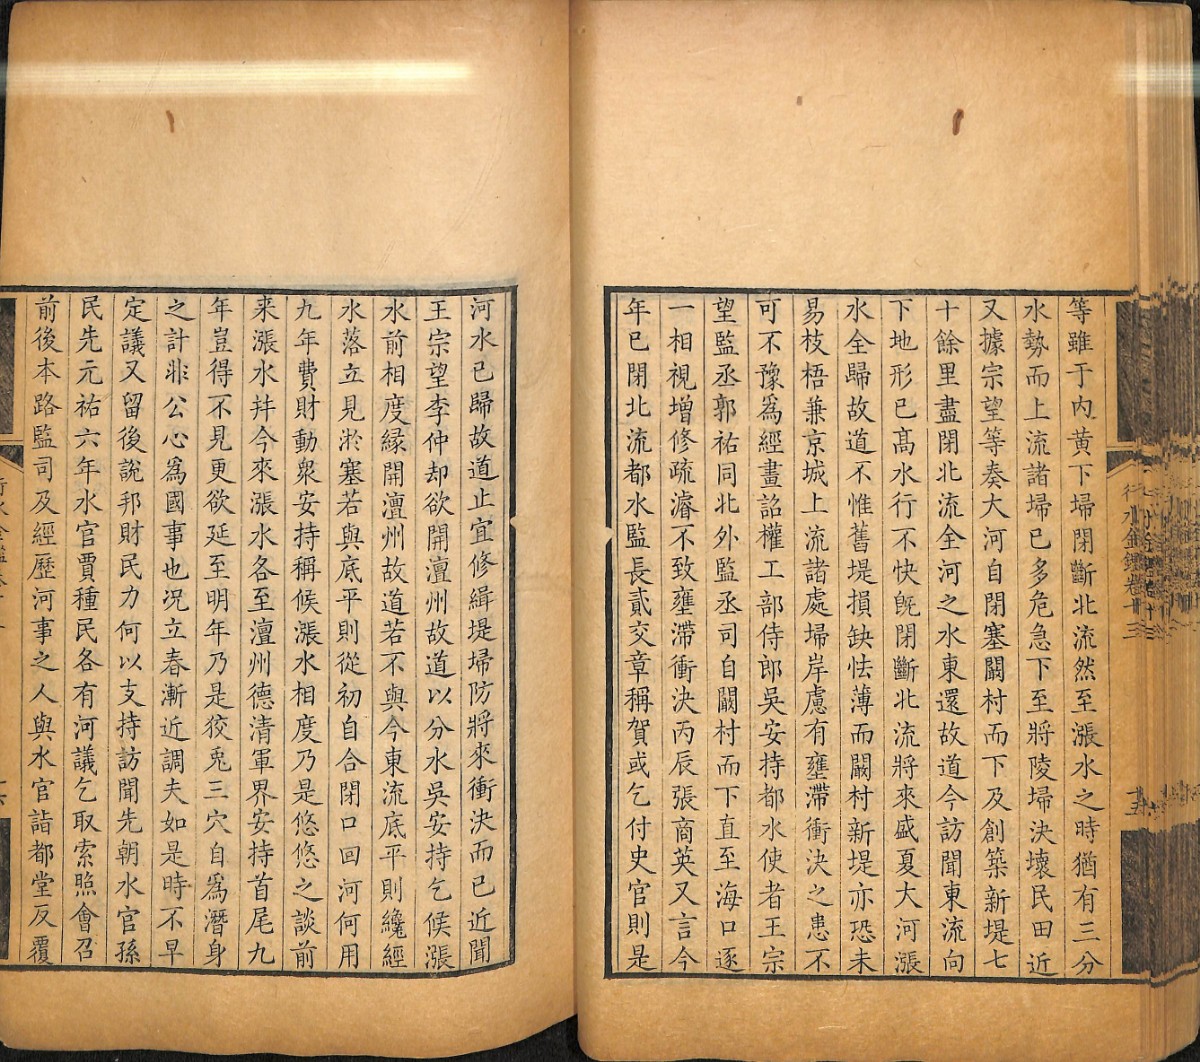 等雖于内黄下埽閉斷北流然至漲水之時猶有三分
水勢而上流諸埽已多危急下至將陵埽決壞民田近
又據宗望等奏大河自閉塞闞村而下及創築新堤七
十餘里盡閉北流全河之水東還故道今訪聞東流向
下地形已髙水行不快旣閉斷北流將來盛夏大河漲
水全歸故道不惟舊堤損缺怯薄而闞村新堤亦恐未
易枝梧兼京城上流諸處埽岸慮有壅滯衝決之患不
可不豫爲經畫詔權工部侍郎吳安持都水使者王宗
望監丞郭祐同北外監丞司自闞村而下直至海口逐
一相視增修疏濬不致壅滯衝決丙辰張商英又言今
年已閉北流都水監長貳交章稱賀或乞付史官則是
河水已歸故道止宜修緝堤埽防將來衝決而已近聞
王宗望李仲却欲開澶州故道以分水吳安持乞候漲
水前相度緣開澶州故道若不與今東流底平則纔經
水落立見淤塞若與底平則從初自合閉口回河何用
九年費財動衆安持稱候漲水相度乃是悠悠之談前
来漲水幷今來漲水各至澶州德清軍界安持首尾九
年豈得不見更欲延至明年乃是狡兎三穴自爲潛身
之計非公心爲國事也况立春漸近調夫如是時不早
定議又留後說邦財民力何以支持訪聞先朝水官孫
民先元祐六年水官賈種民各有河議乞取索照會召
前後本路監司及經歷河事之人與水官詣都堂反覆
行水金鑑卷十三